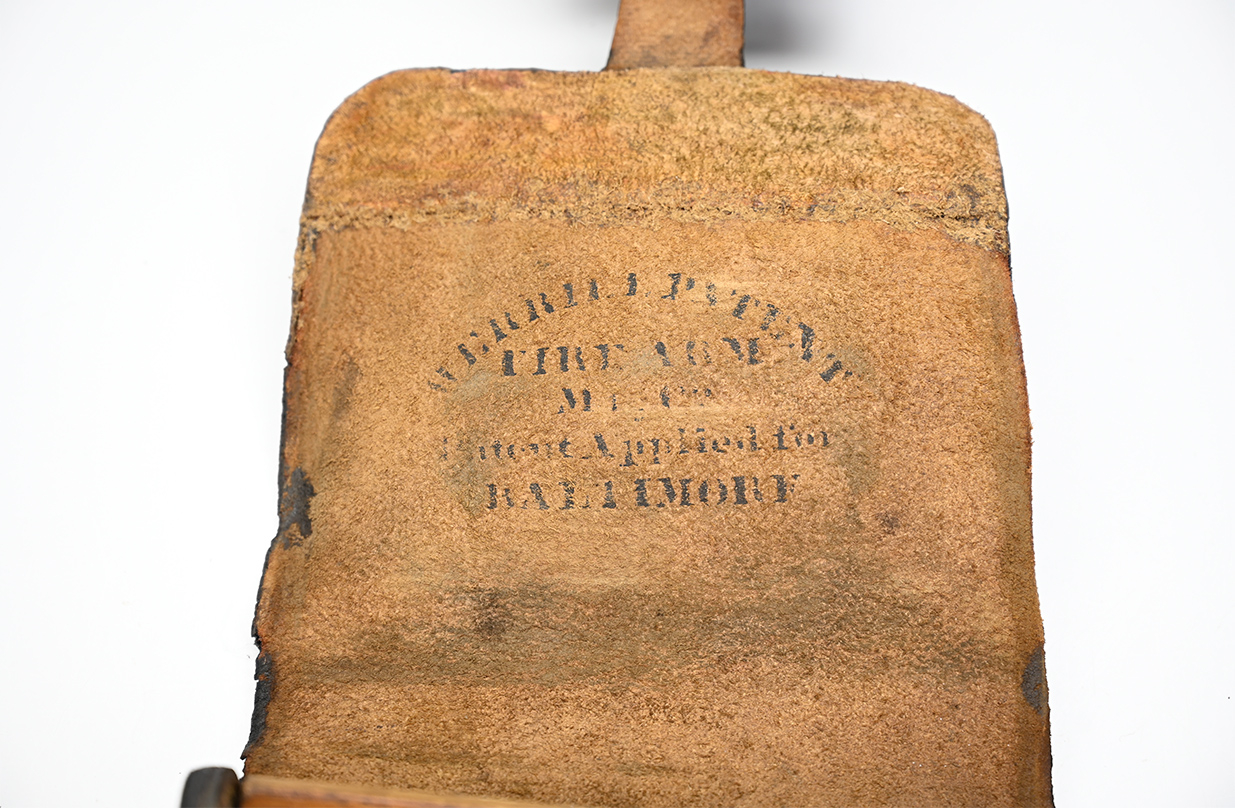 MERRILL PATENT
FIRE ARM
Mf. Co.
Patent Applied for
BALTIMORE